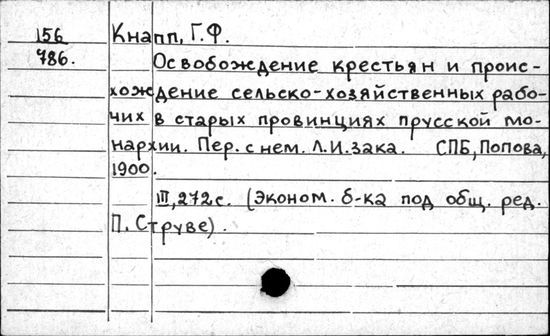 156 Кнапп, Г.Ф.
786. Освобождение крестьян и проис-
хождение сельско-хозяйственных рабо-
чих в старых провинциях прусской мо-
нархии. Пер. с нем. Л.И.Зака. СПБ, Попова,
1900.
III, 272 с. (Эконом. б-ка под общ. ред.
П. Струве).